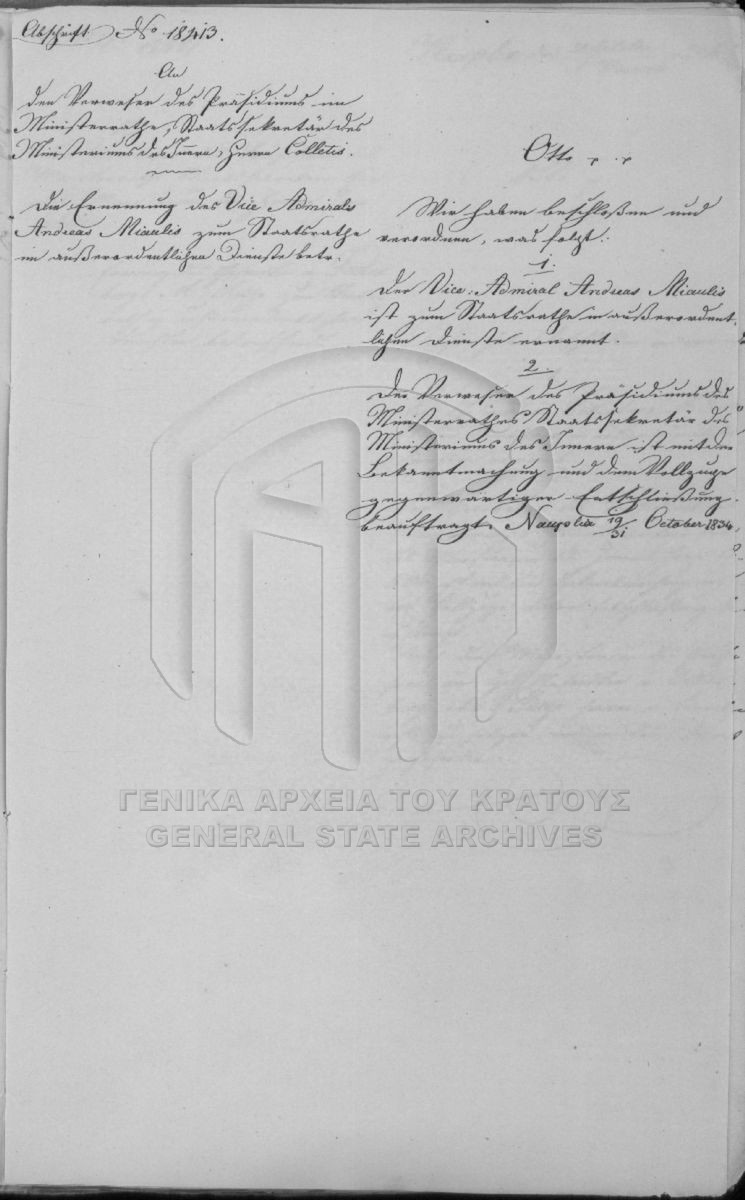 Abschrift No 18413.
An
den Verweser des Präsidiums im
Ministerrathe, Staatssekretär des
Ministeriums des Innern, Herrn Colletis.
Die Ernennung des Vice Admirals
Andreas Miaulis zum Staatsrathe
im außerordentlichen Dienste betr.
Otto
Wir haben beschloßen und
verordnen, was folgt:
1.
Der Vice-Admiral Andreas Miaulis
ist zum Staatsrathe in außerordent-
lichen Dienste ernannt.
2.
Der Verweser des Präsidiums des
Ministerrathes Staatssekretär des
Ministeriums des Innern ist mit der
Bekanntmachung und dem Vollzuge
gegenwärtiger Entschließung
beauftragt. Nauplia 19/31 October 1834
ΓΕΝΙΚΑ ΑΡΧΕΙΑ ΤΟΥ ΚΡΑΤΟΥΣ
GENERAL STATE ARCHIVES